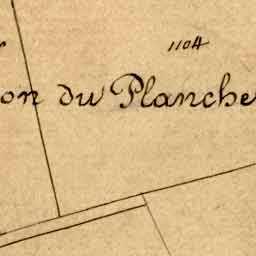 1104
on du Planche